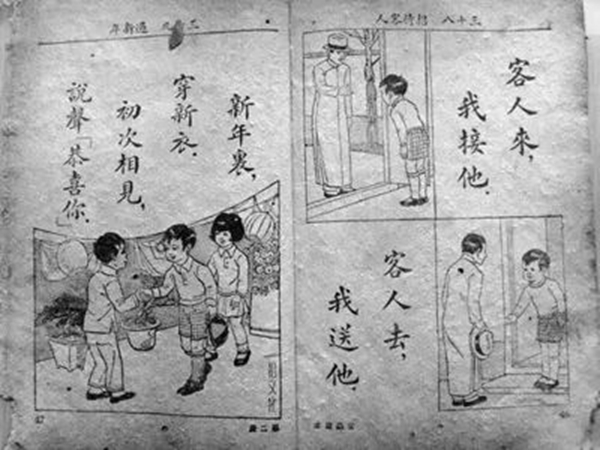 三十八 招待客人
客人來，
我接他．
客人去，
我送他．
過新年
新年裏，
穿新衣．
初次相見，
說聲「恭喜你．」
47